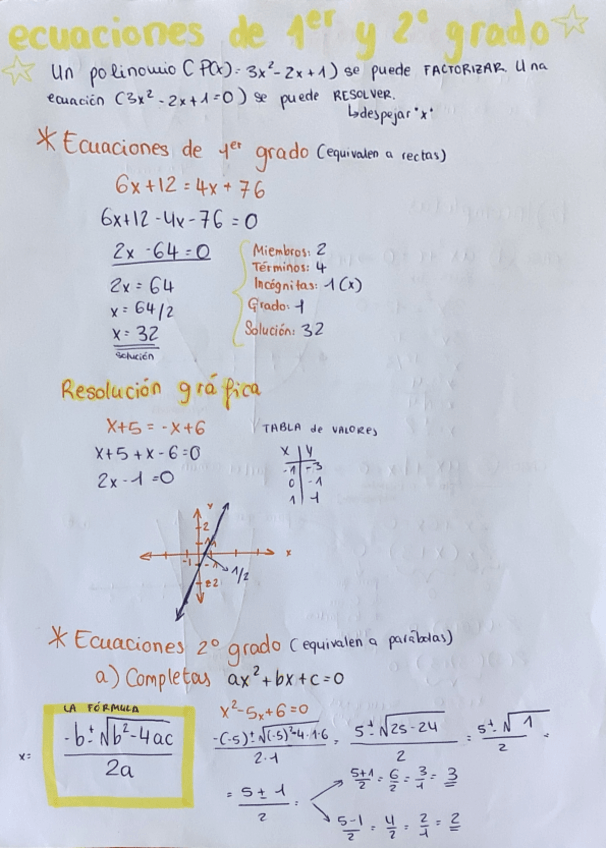 ecuaciones de 1er y 2º grado
Un polinomio (P(x)= 3x²-2x+1) se puede FACTORIZAR. Una
ecuación (3x²-2x+1=0) se puede RESOLVER.
↳despejar "x"
* Ecuaciones de 1er grado (equivalen a rectas)
6x+12=4x+76
6x+12-4x-76=0
2x-64=0
2x=64
x=64/2
x=32
solución
Miembros: 2
Términos: 4
Incógnitas: 1 (x)
Grado: 1
Solución: 32
Resolución gráfica
x+5=-x+6
x+5+x-6=0
2x-1=0
TABLA de VALORES
x | y
-1 | -3
0 | -1
1 | 1
y
2
1
x
-1
-1
-2
1/2
* Ecuaciones 2º grado (equivalen a parábolas)
a) Completas ax²+bx+c=0
LA FÓRMULA
x= (-b±√(b²-4ac))/(2a)
x²-5x+6=0
(-(-5)±√((-5)²-4·1·6))/(2·1) = (5±√(25-24))/2 = (5±√1)/2 =
= (5±1)/2 =
(5+1)/2 = 6/2 = 3/1 = 3
(5-1)/2 = 4/2 = 2/1 = 2